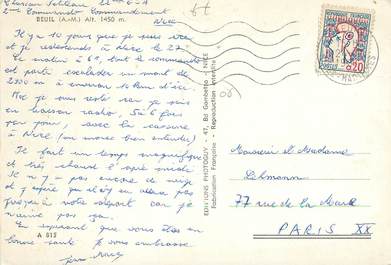 2ème Commando
BEUIL (A.-M.) Alt. 1450 m.
Il y a 10 jours que je suis ici
et je redescends à Nice le 22
Ce matin à 6h, tout le commando
est parti escalader un mont de
2300 m à environ 10 km d'ici.
Moi je suis resté car je suis
en liaison radio, 5 à 6 fois
par jour, avec la caserne
à Nice (en morse bien entendu)
Il fait un temps magnifique
et très chaud l'après midi
Il n'y a pas encore de neige
et j'espère qu'il n'y en aura pas
jusqu'à notre départ car je
n'aime pas ça.
En espérant que vous êtes en
bonne santé je vous embrasse
A 012
EDITIONS PHOTOGUY - 47, Bd Gambetta - NICE
Fabrication Française - Reproduction Interdite
0,20
Monsieur et Madame
77 rue de la Mare
PARIS XX